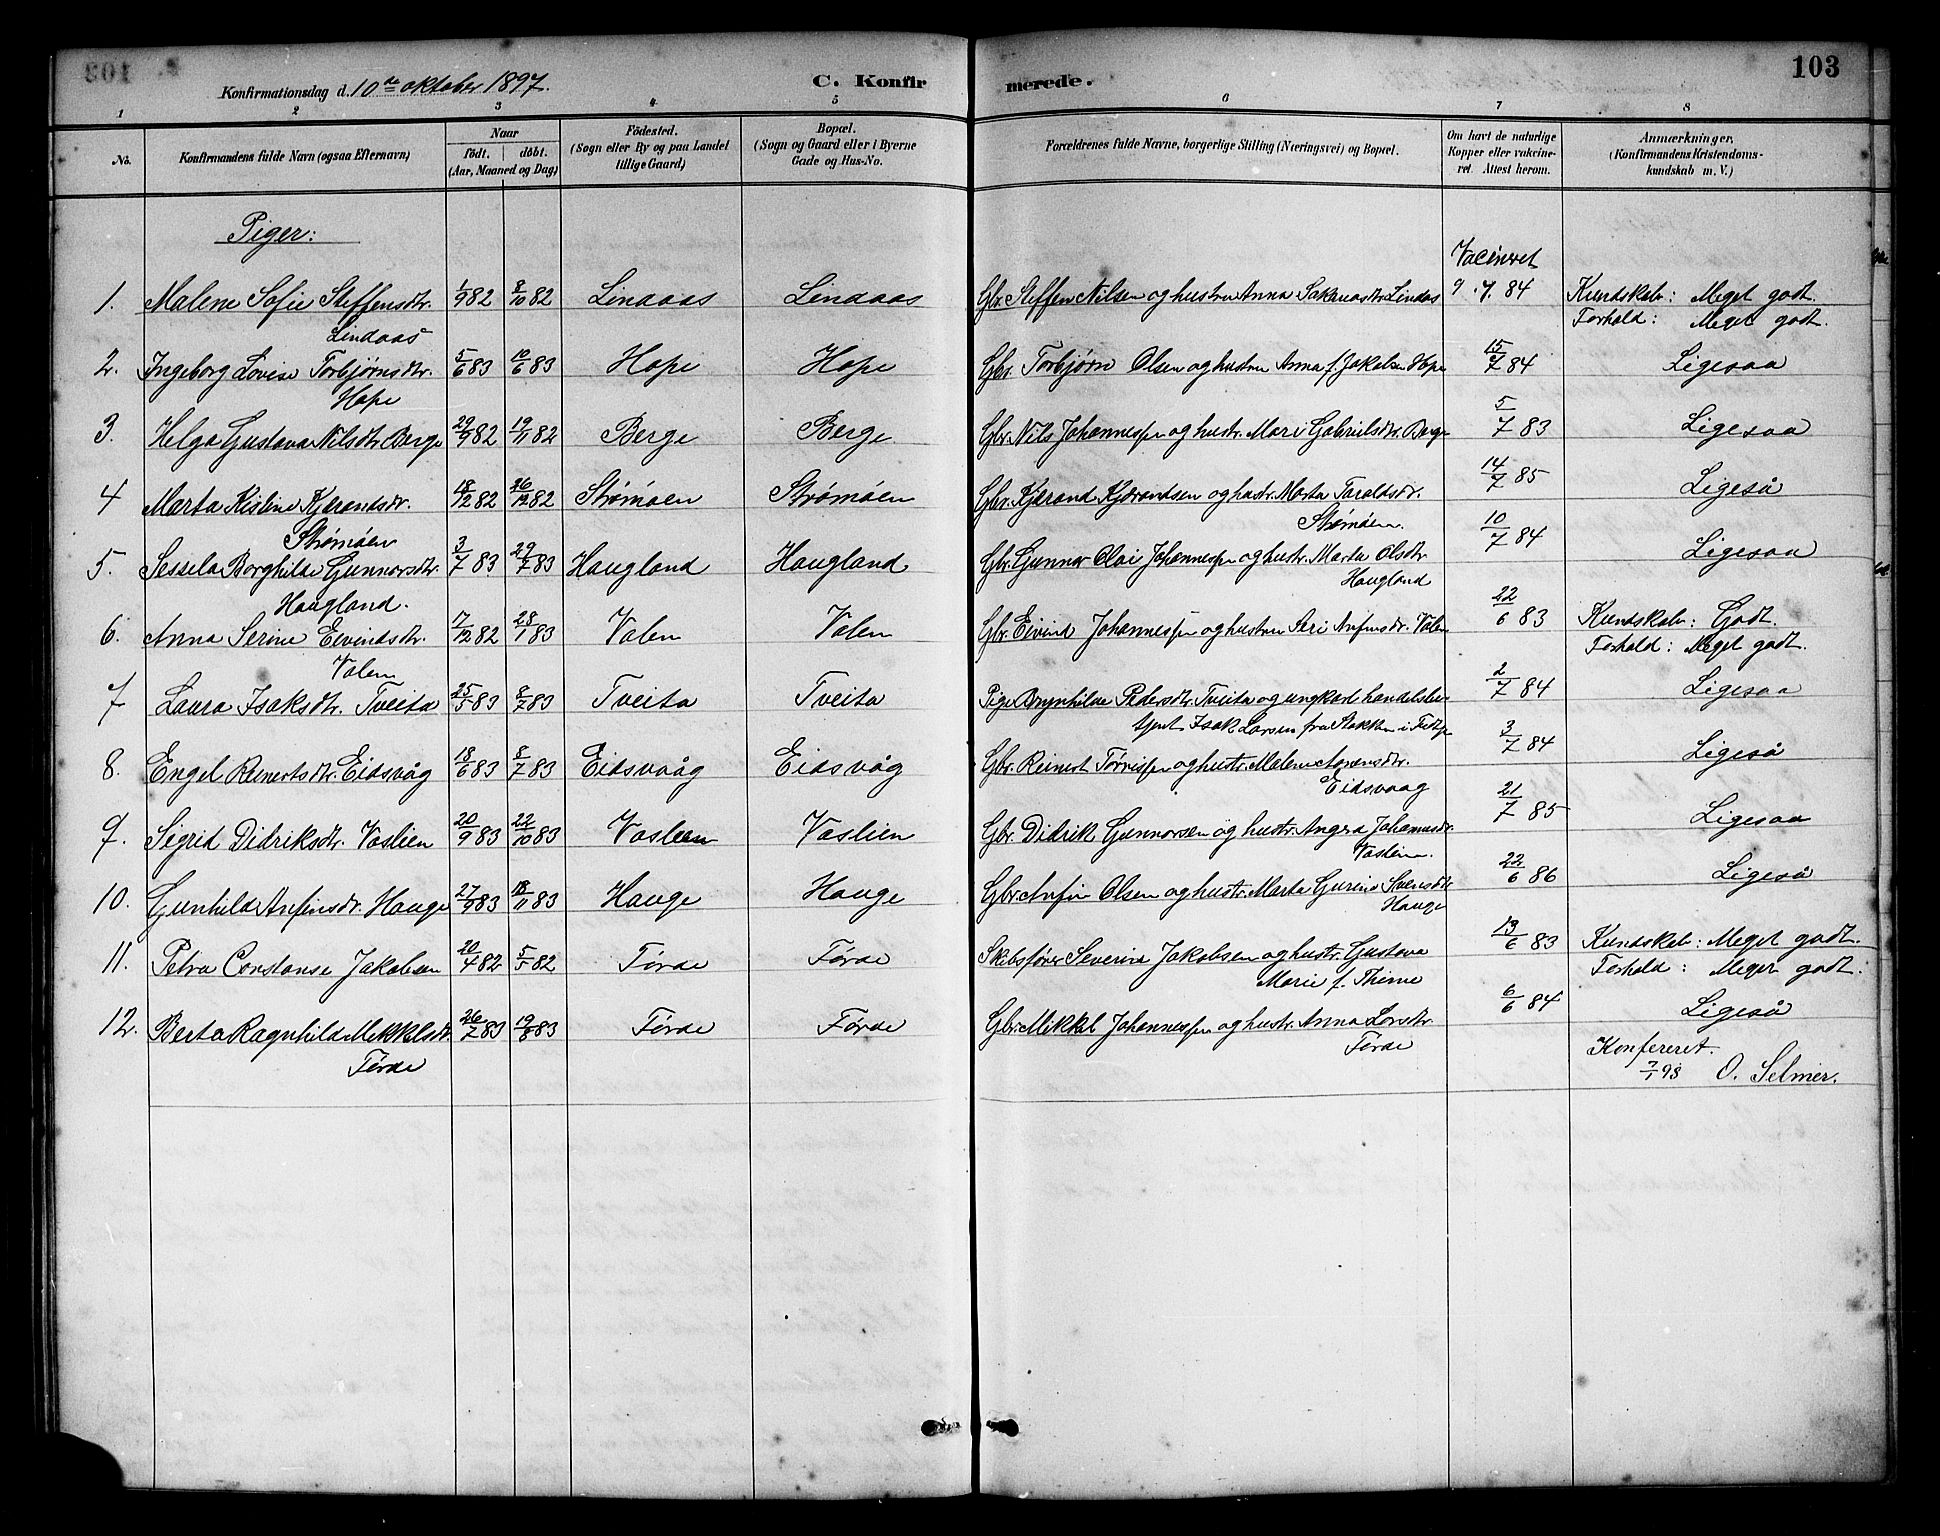 103
Konfirmationsdag d. 10de oktober 1897. C. Konfirmerede.
1 2 3 4 5 6 7 8
No. Konfirmandens fulde Navn (ogsaa Efternavn) Naar födt. döbt. (Aar, Maaned og Dag) Födested. (Sogn eller By og paa Landet tillige Gaard) Bopæl. (Sogn og Gaard eller i Byerne Gade og Hus-No. Forældrenes fulde Navne, borgerlige Stilling (Næringsvei) og Bopæl. Om havt de naturlige Kopper eller vakcineret. Attest herom. Anmærkninger, (Konfirmandens Kristendomskundskab m. V.)
Piger:
Vacineret
1. Malene Sofie Steffensdtr. 1/9 82 8/10 82 Lindaas Lindaas Gbr. Steffen Nilsen og hustru Anna Lindås 9.7.84 Kundskab: Meget godt.
Lindaas Forhold: Meget godt.
2. Ingeborg Lovise Torbjørnsdtr. 5/6 83 10/6 83 Hope Hope Gbr. Torbjørn Olsen og hustru Anna f. Jakobsen Hope 15/7 84 Ligesaa
Hope
3. Helga Gustava Nilsdtr. Berge 29/9 82 19/11 82 Berge Berge Gbr. Nils Johannessen og hustr. Mari Gabrielsdtr. Berge 5/7 83 Ligesaa
4 Marta Kistine Kjærandsdr. 18/12 82 26/12 82 Strømøen Strømøen Gbr. Kjærand Kjærandsen og hustr. Marta Taraldsdr. 14/7 85 Ligeså
Strømøen Strømøen.
5. Sessela Borghilde Gunnarsdtr. 3/7 83 29/7 83 Haugland Haugland Gbr. Gunnar Olai Johannessen og hustr. Marta Olsdtr 10/7 84 Ligesaa
Haugland. Haugland
6. Anna Serine Eivindsdtr. 7/12 82 28/1 83 Valen Valen Gbr. Eivind Johannessen og hustru Siri Anfinsdtr. Valen 22/6 83 Kundskab: Godt.
Valen Forhold: Meget godt.
7 Laura Isaksdtr. Tveita 25/5 83 8/7 83 Tveita Tveita Pige Brynhilde Pedersdtr. Tveita og ungkarl handelsbe- 2/7 84 Ligesaa
tjent Isak Larsen fra Stakken i
8. Engel Reinertsdtr. Eidsvåg 18/6 83 8/7 83 Eidsvaåg Eidsvåg Gbr. Reinert Torrissen og hustr. Malene Aarensdtr. 3/7 84 Ligeså
Eidsvaag
9. Sigrid Didriksdtr. Vaslien 20/9 83 22/10 83 Vaslien Vaslien Gbr. Didrik Gunnarsen og hustr. Angra Johannesdtr. 21/7 85 Ligesaa
Vaslien.
10. Gunhild Anfinsdtr. Hauge 27/9 83 18/11 83 Hauge Hauge Gbr. Anfin Olsen og hustr. Marta Gurine Svensdtr 22/6 86 Ligeså
Hauge
11. Petra Constanse Jakobsen 20/4 82 5/5 82 Førde Førde Skibsfører Severin Jakobsen og hustr. Gustava 13/6 83 Kundskab: Meget godt.
Marie f. Thieme Forhold: Meget godt.
12. Berta Ragnhilda Mikkelsdtr. 26/7 83 19/8 83 Førde Førde Gbr. Mikkel Johannessen og hustr. Anna Larsdtr 6/6 84 Ligeså
Førde Førde
Konfereret.
7/1 98 O. Selmer.